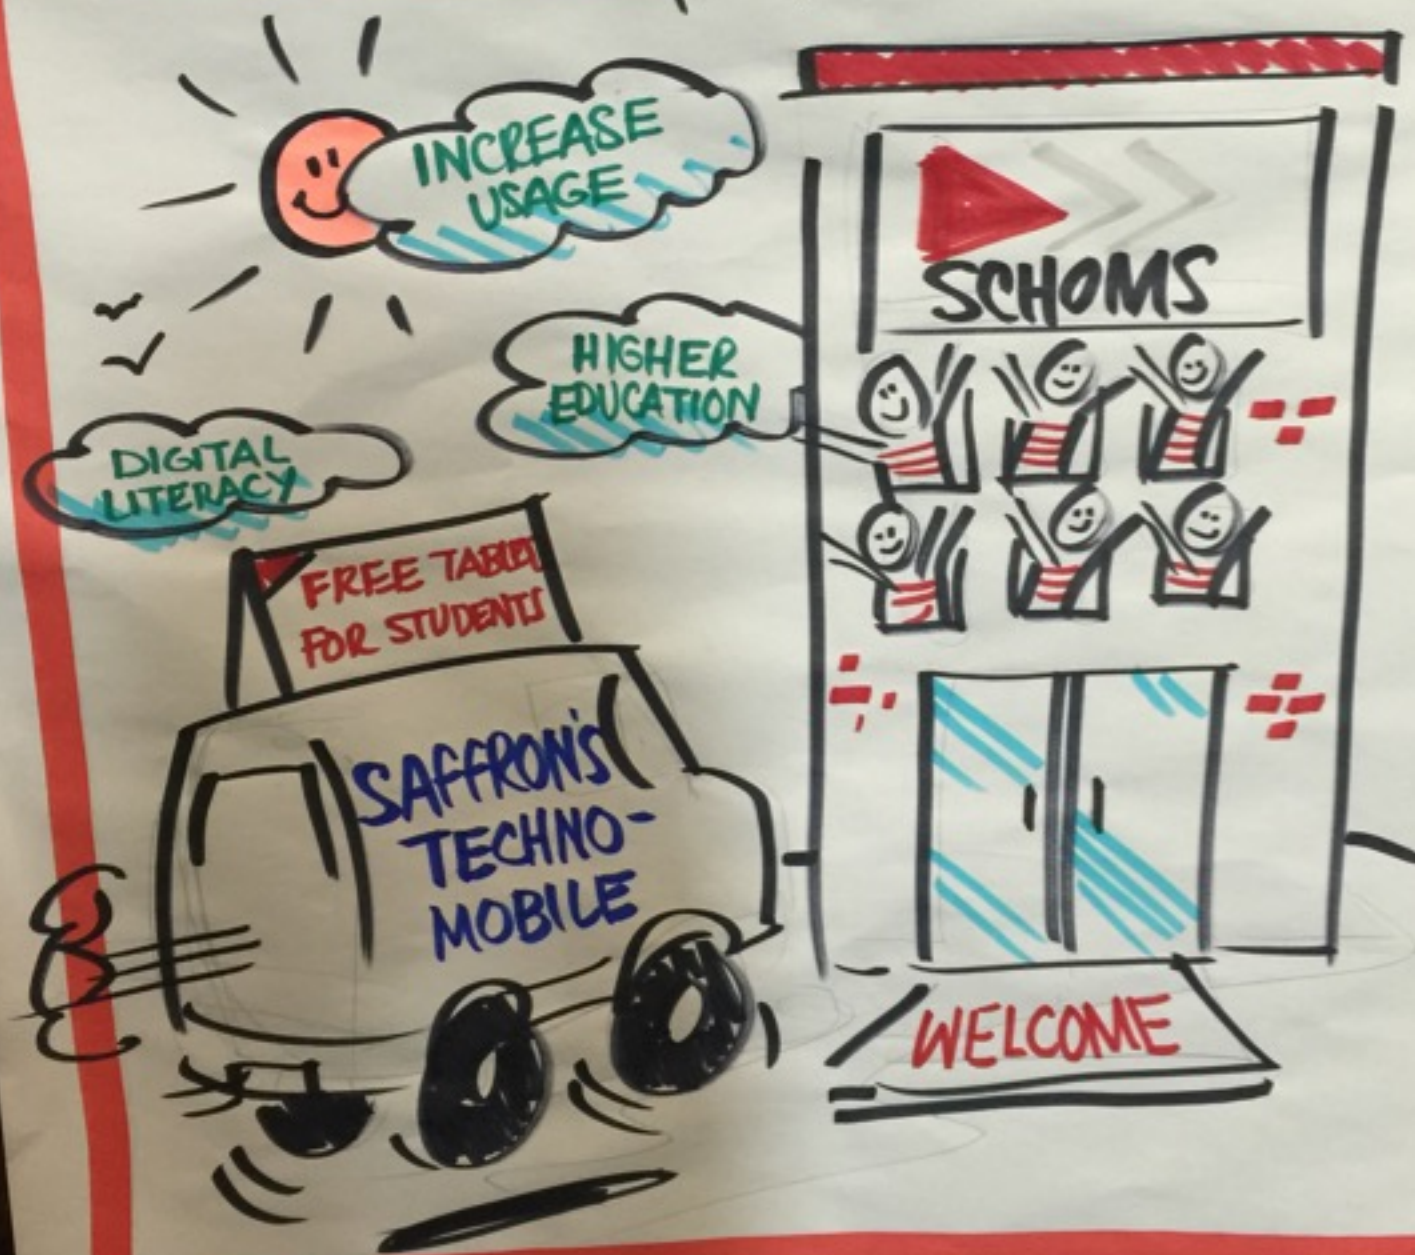 INCREASE
USAGE
HIGHER
EDUCATION
DIGITAL
LITERACY
SCHOMS
FREE TABLET
FOR STUDENTS
SAFFRON'S
TECHNO-
MOBILE
WELCOME